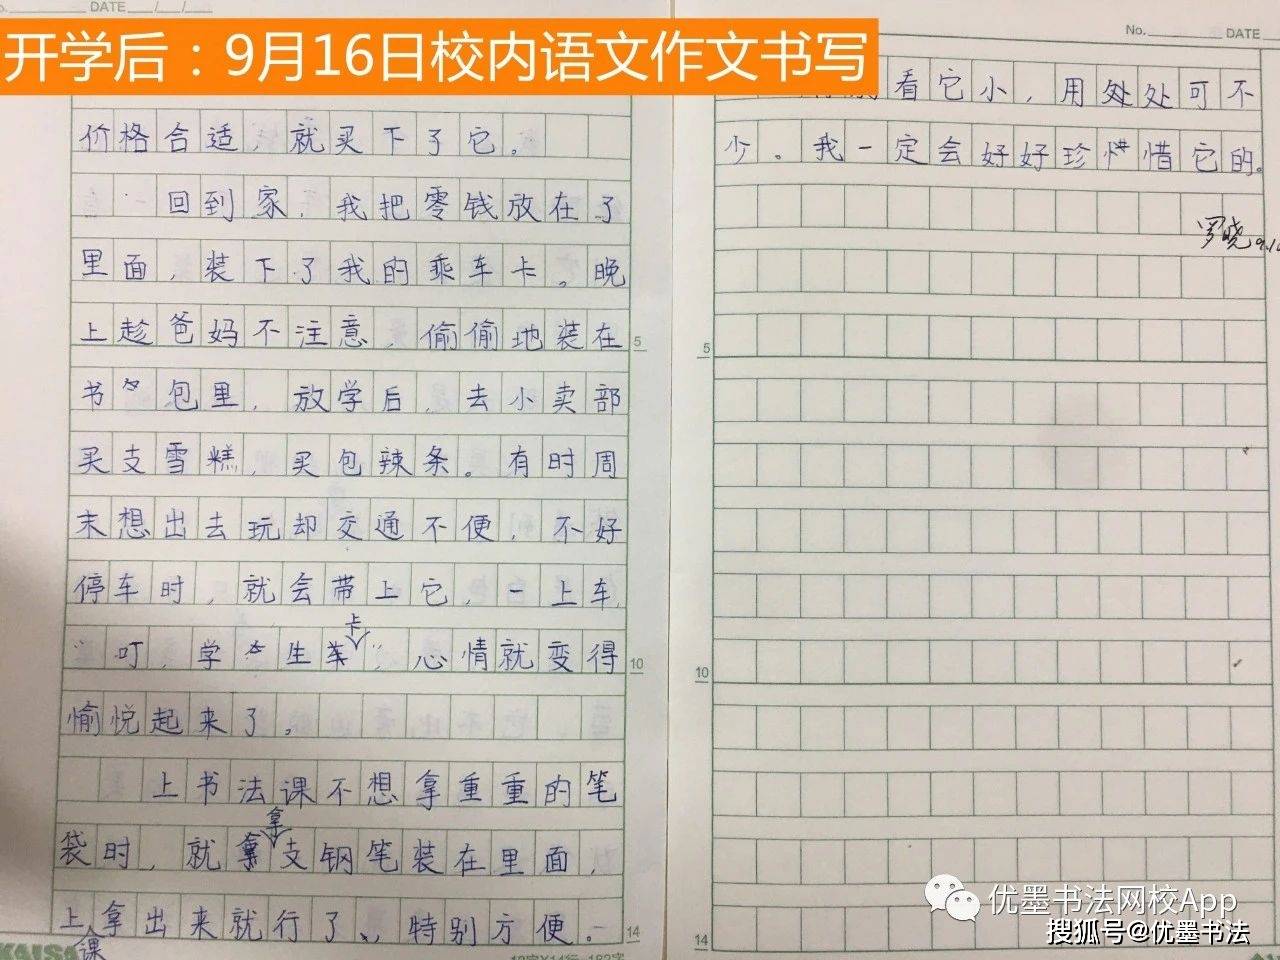 DATE / /
开学后：9月16日校内语文作文书写
价格合适，就买下了它。
回到家，我把零钱放在了
里面，装下了我的乘车卡。晚
上趁爸妈不注意，偷偷地装在
书包里，放学后，去小卖部
买支雪糕，买包辣条。有时周
末想出去玩却交通不便，不好
停车时，就会带上它，一上车，
“叮，学生卡”，心情就变得
愉悦起来了。
上书法课不想拿重重的笔
袋时，就拿支钢笔装在里面，
上课拿出来就行了，特别方便。
5
10
14
No. DATE
看它小，用处处可不
少。我一定会好好珍惜它的。
罗晓
5
10
14
优墨书法网校App
搜狐号@优墨书法